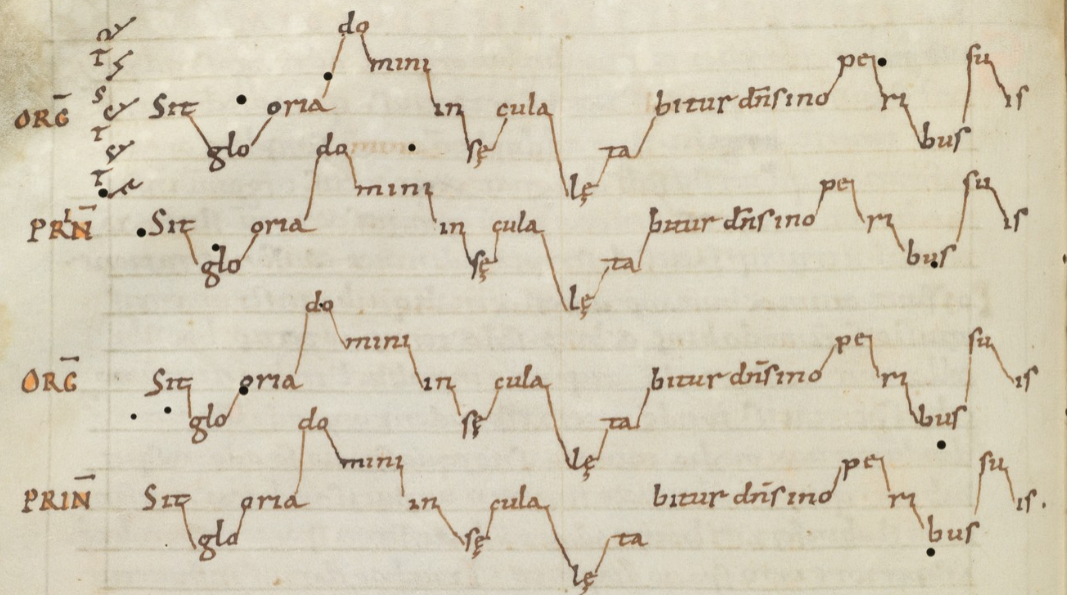 ORḠ Sit glo oria do mini in sę cula lę ta bitur dn̄s ino pe ri bus su is
PRIN̄ Sit glo oria do mini in sę cula lę ta bitur dn̄s ino pe ri bus su is
ORḠ Sit glo oria do mini in sę cula lę ta bitur dn̄s ino pe ri bus su is
PRIN̄ Sit glo oria do mini in sę cula lę ta bitur dn̄s ino pe ri bus su is.